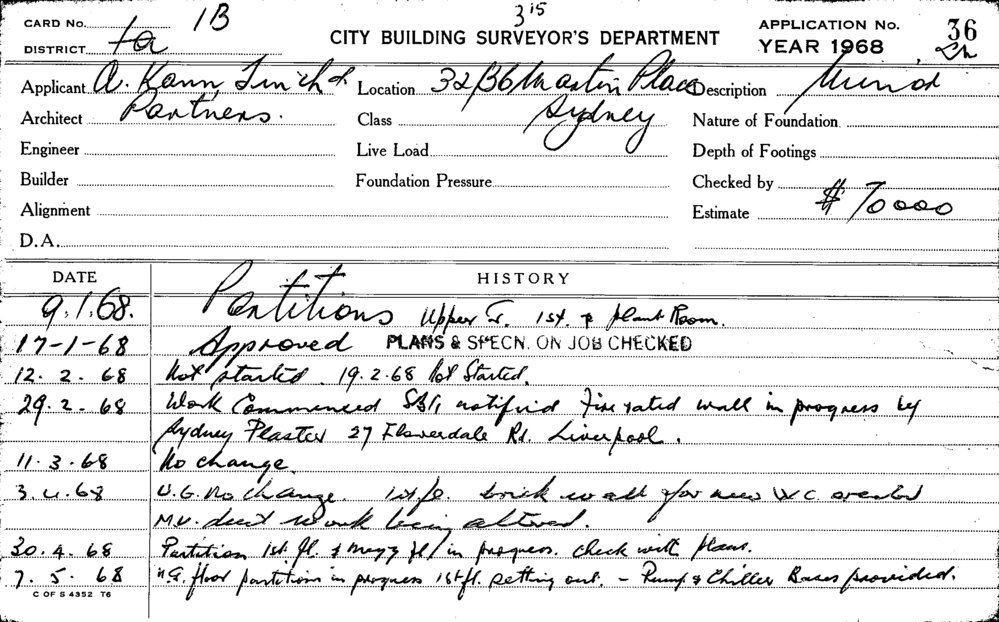 CARD No. 1 1B 3 15 APPLICATION No. 36
DISTRICT 1a CITY BUILDING SURVEYOR'S DEPARTMENT YEAR 1968
Applicant A. Kann Finch & Location 32/36 Martin Place Description Minor
Architect Partners. Class Sydney Nature of Foundation
Engineer Live Load Depth of Footings
Builder Foundation Pressure Checked by
Alignment Estimate $ 70000
D.A.
DATE HISTORY
9.1.68. Partitions Upper G. 1st. & plant Room.
17-1-68 Approved PLANS & SPECN. ON JOB CHECKED
12.2.68 Not started. 19.2.68 Not Started.
29.2.68 Work Commenced notified Fire rated wall in progress by
Sydney Plaster 27 Flowerdale Rd. Liverpool.
11.3.68 No change.
3.4.68 U.G. No change. 1st fl. brick wall for new W.C erected
M.V. duct work being altered.
30.4.68 Partition 1st fl. & mezz fl in progress. check with plans.
7.5.68 U.G. floor partitions in progress 1st fl. setting out. - Pump & Chiller Bases provided.
C OF S 4352 T6